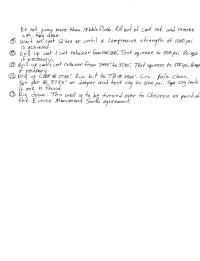 Do not pump more than 10 bbls flush. Pull out of cmt ret. and reverse
out. Rig down.
⑨ Wait on cmt 12 hrs or until a compressive strength of 1000 psi
is achieved.
⑩ Drill up cmt & cmt retainer from Test squeeze to 500 psi. Re-sqze
if necessary.
⑪ Drill up cmt & cmt retainer from to 3750'. Test squeeze to 500 psi. Re-sqze
if necessary.
⑫ Drill up CIBP @ Run bit to TD @ Circ. hole clean.
Set pkr @ 3750' or deeper and test csg to 500 psi. Sqz csg leak
if one is found.
⑬ Rig down. This well is to be turned over to Chevron as part of
the Eunice Monument South agreement.